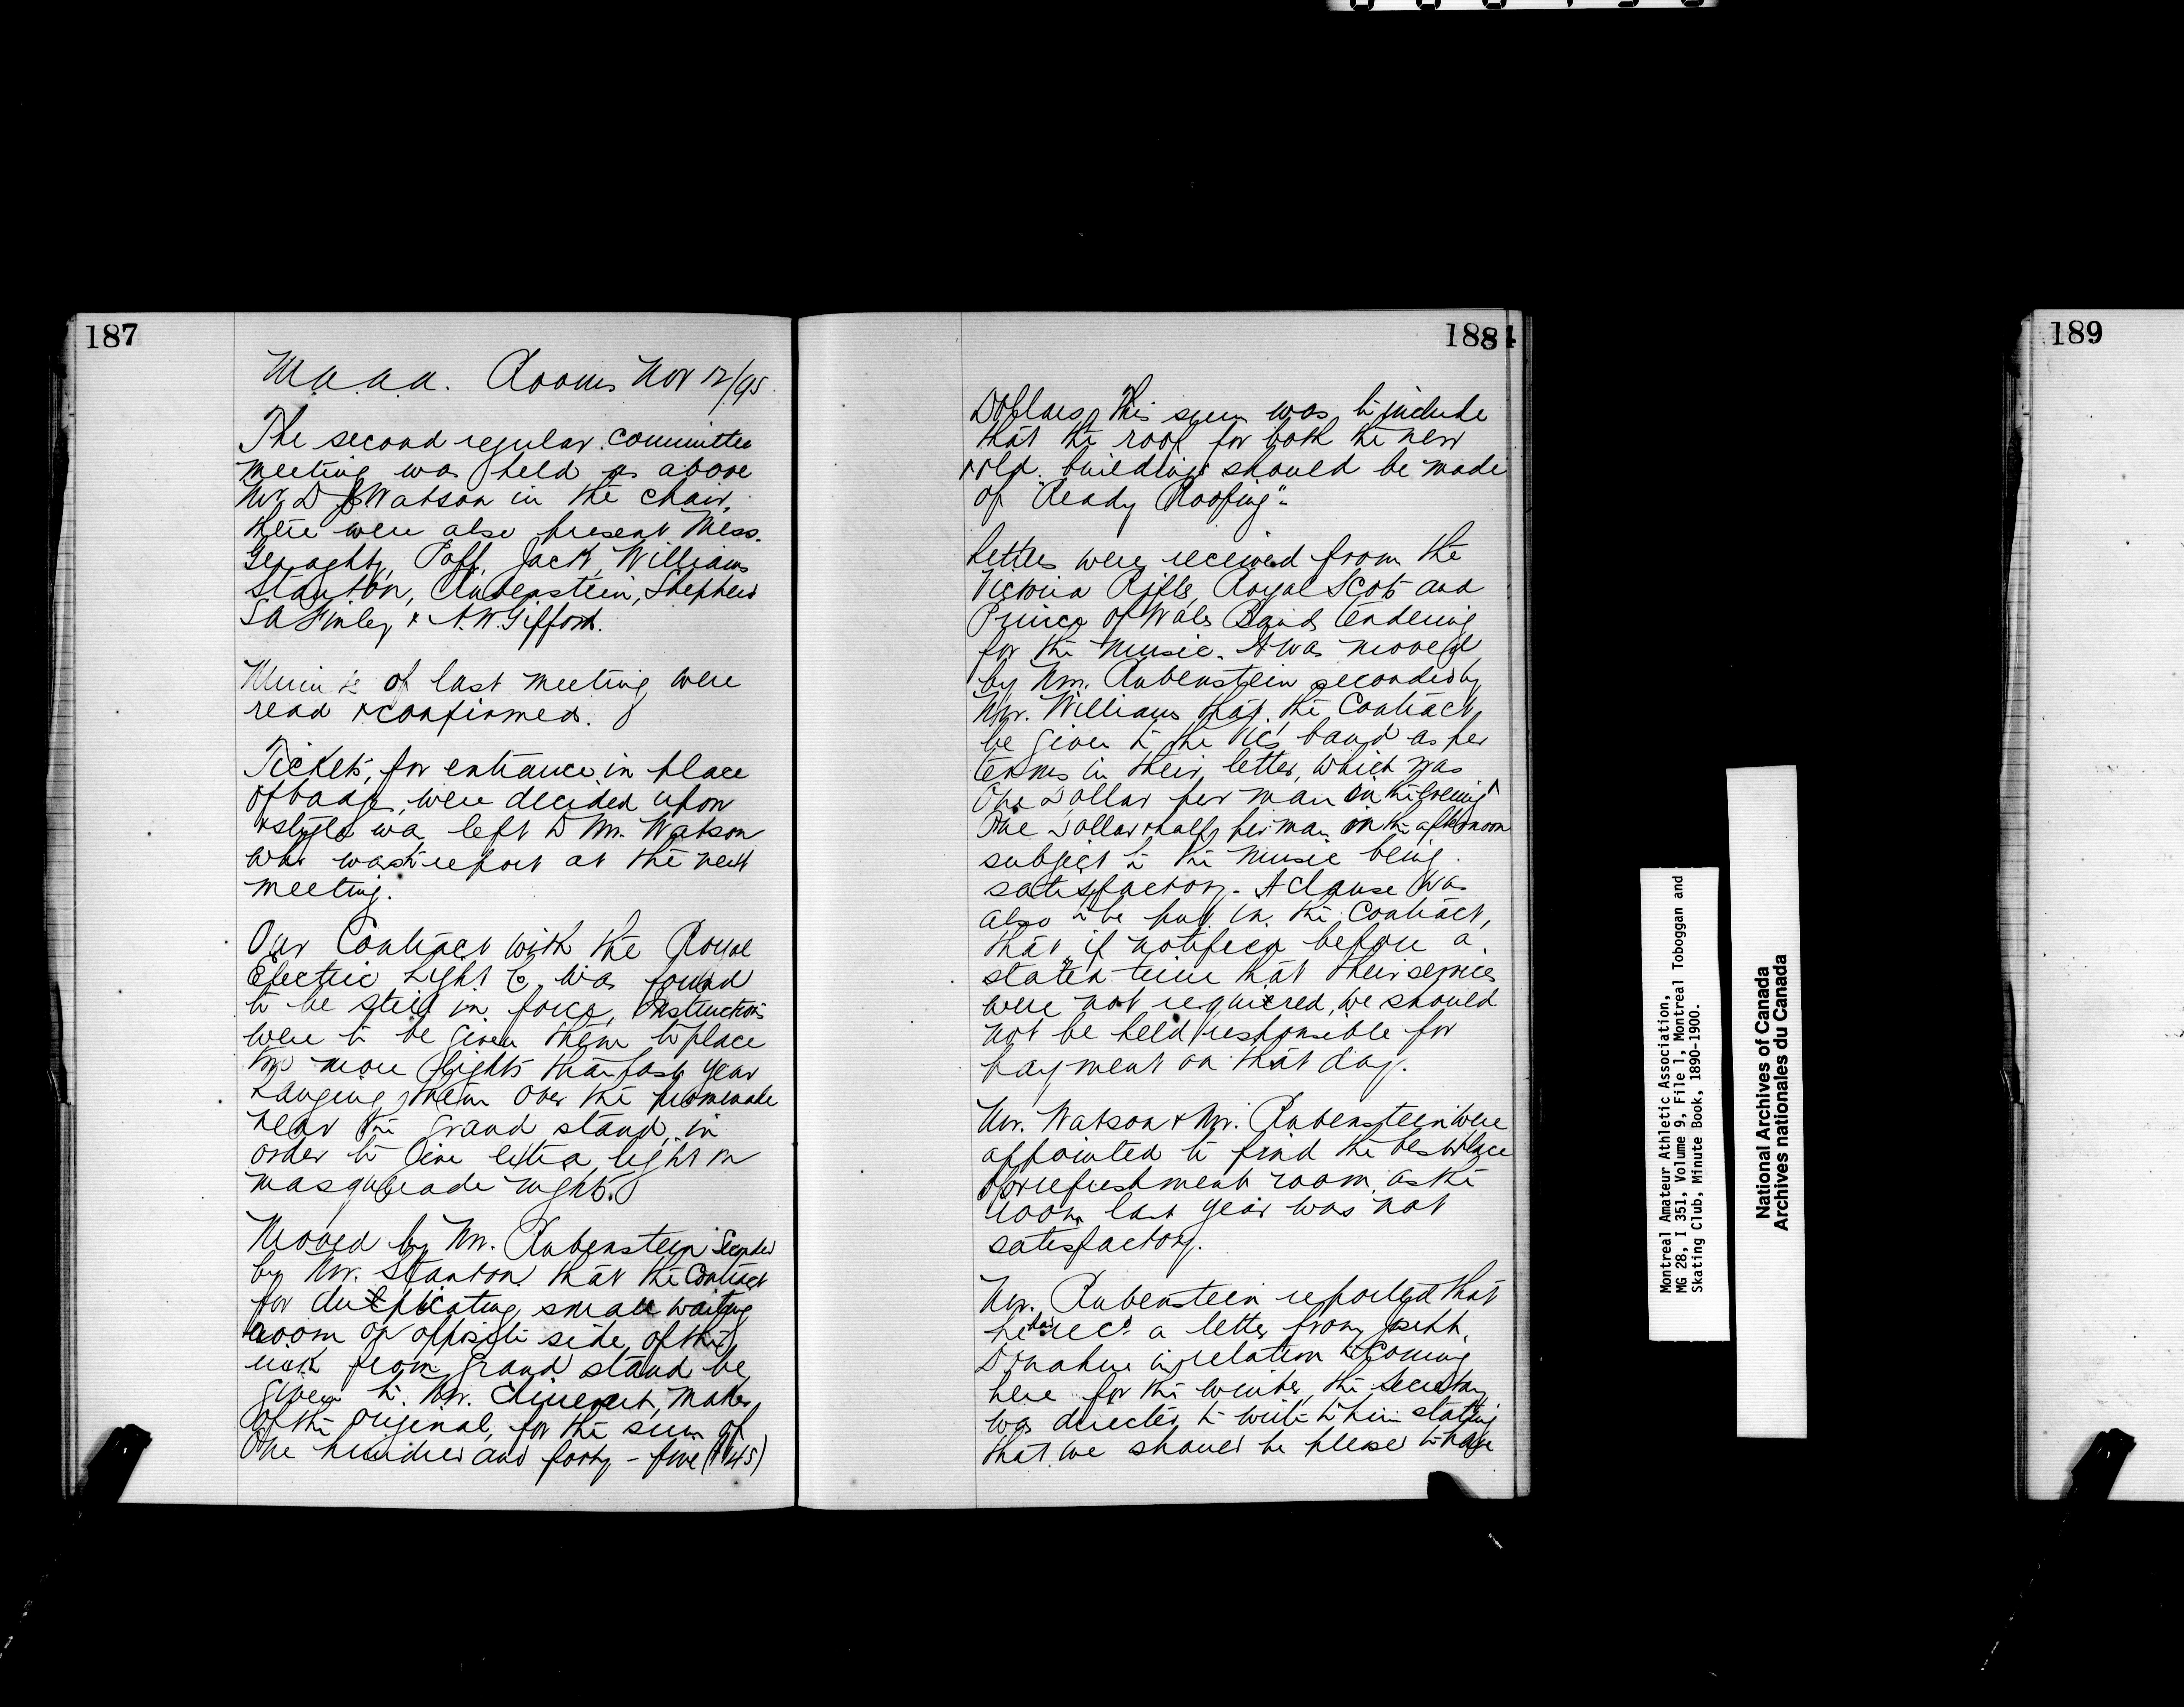 187
M.a.a.a. Rooms Nov 12/95
The second regular committee
meeting was held as above
Mr D Watson in the chair,
there were also present Mess.
Geraghty, Paff, Jack, Williams
Stanton, Rubenstein, Shepherd
Finley & A.W. Gifford.
Minute of last meeting were
read & confirmed.
Tickets, for entrance in place
of badge, were decided upon
& style was left to Mr. Watson
who was to report at the next
meeting.
Our Contract with the Royal
Electric Light Co was found
to be still in force, Instructions
were to be given them to place
two more lights than last year
hanging them over the promenade
near the grand stand, in
order to give extra light on
masquerade nights.
Moved by Mr. Rubenstein Seconded
by Mr. Stanton that the Contract
for duplicating small waiting
room on opposite side of the
rink from grand stand be
given to Mr. maker
of the original, for the sum of
One hundred and forty-five ($145)
188
Dollars, this sum was to include
that the roof for both the new
& old buildings should be made
of "Ready Roofing".
Letters were received from the
Victoria Rifle, Royal Scots and
Prince of Wales Bands tendering
for the music. It was moved
by Mr. Rubenstein seconded by
Mr. Williams that the Contract
be given to the Vics band as per
terms in their letter, which was
One Dollar per man in the Evening
One Dollar & half per man in the afternoon
subject to the music being
satisfactory. A Clause was
also to be put in the Contract,
that if notified before a
stated time that their services
were not required, we should
not be held responsible for
payment on that day.
Mr. Watson & Mr. Rubenstein were
appointed to find the best place
for refreshment room, as the
room last year was not
satisfactory.
Mr. Rubenstein reported that
he had recd a letter from
Donahue in relation to coming
here for the winter, the Secretary
was directed to write to him stating
that we should be pleased to have
189
Montreal Amateur Athletic Association,
MG 28, I 351, Volume 9, File 1, Montreal Toboggan and
Skating Club, Minute Book, 1890-1900.
National Archives of Canada
Archives nationales du Canada